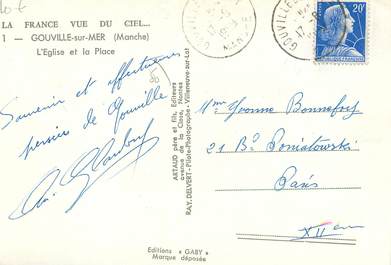 10 €
LA FRANCE VUE DU CIEL...
1 - GOUVILLE-sur-MER (Manche)
L'Eglise et la Place
Souvenir et affectueuses
pensées de Gouville
ARTAUD père et fils, Editeurs
avenue de la Close, Nantes
RAY. DELVERT - Pilote-Photographe - Villeneuve-sur-Lot
Editions « GABY »
Marque déposée
GOUVILLE
MANCHE
GOUVILLE
17
20F
Mme Yvonne Bonnefoy
21 Bd Poniatowski
Paris
XIIem